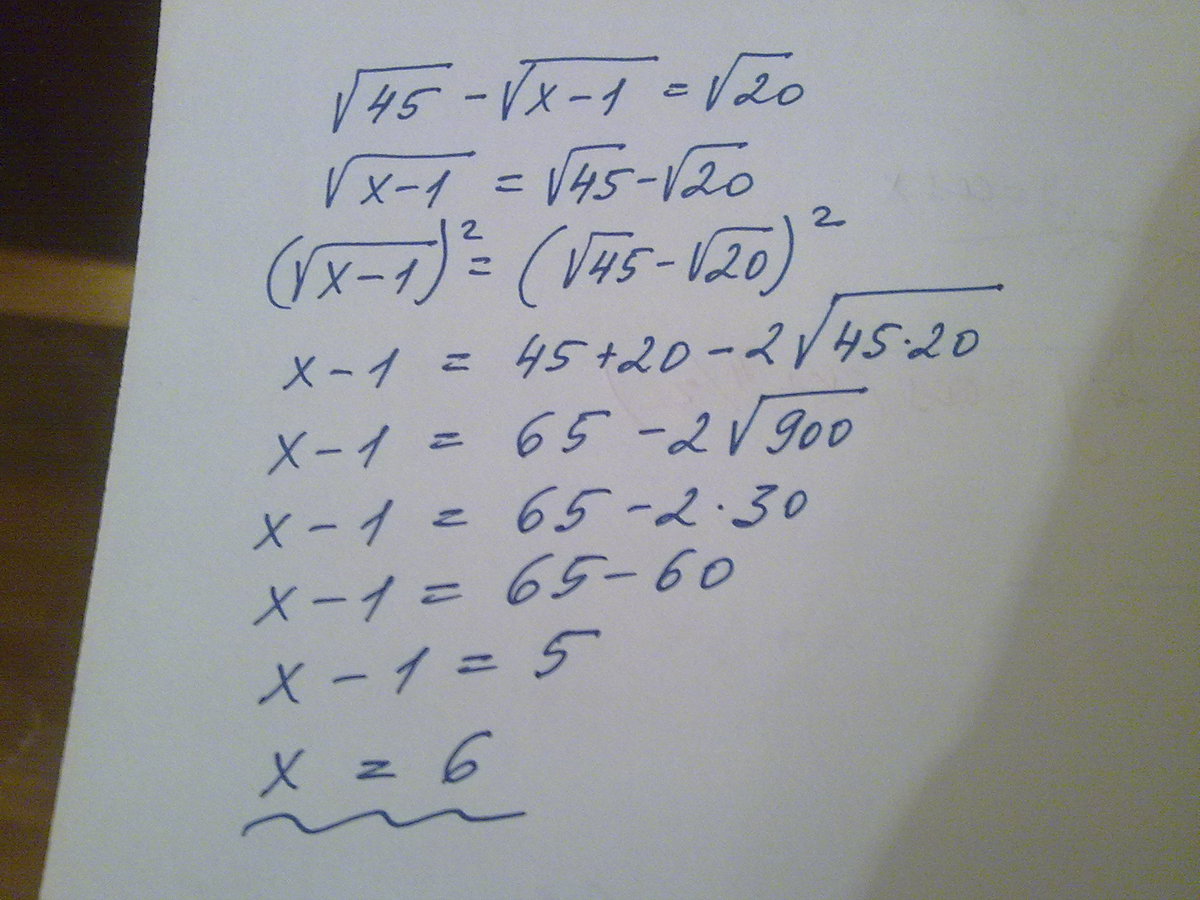 √45 - √x-1 = √20
√x-1 = √45-√20
(√x-1)² = (√45-√20)²
x-1 = 45+20-2√45·20
x-1 = 65-2√900
x-1 = 65-2·30
x-1 = 65-60
x-1 = 5
x = 6